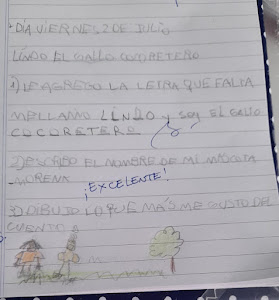 •DÍA VIERNES 2 DE JULIO
LINDO EL GALLO COMPETERO
1) LE AGREGO LA LETRA QUE FALTA
MELLAMO LINDO Y SOY EL GALLO
COCORETERO
2) ESCRIBO EL NOMBRE DE MI MASCOTA
-MORENA
¡EXCELENTE!
3) DIBUJO LO QUE MÁS ME GUSTO DEL
CUENTO